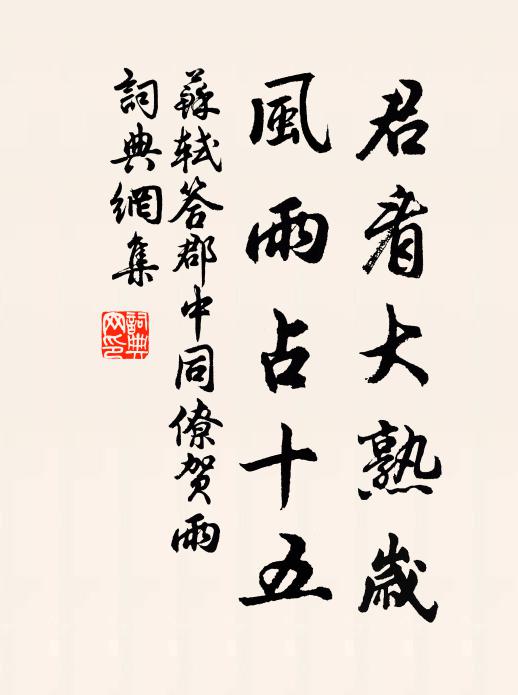 君看大熟歲
風雨占十五
蘇軾答郡中同僚賀雨
詞典網集
詞典网印